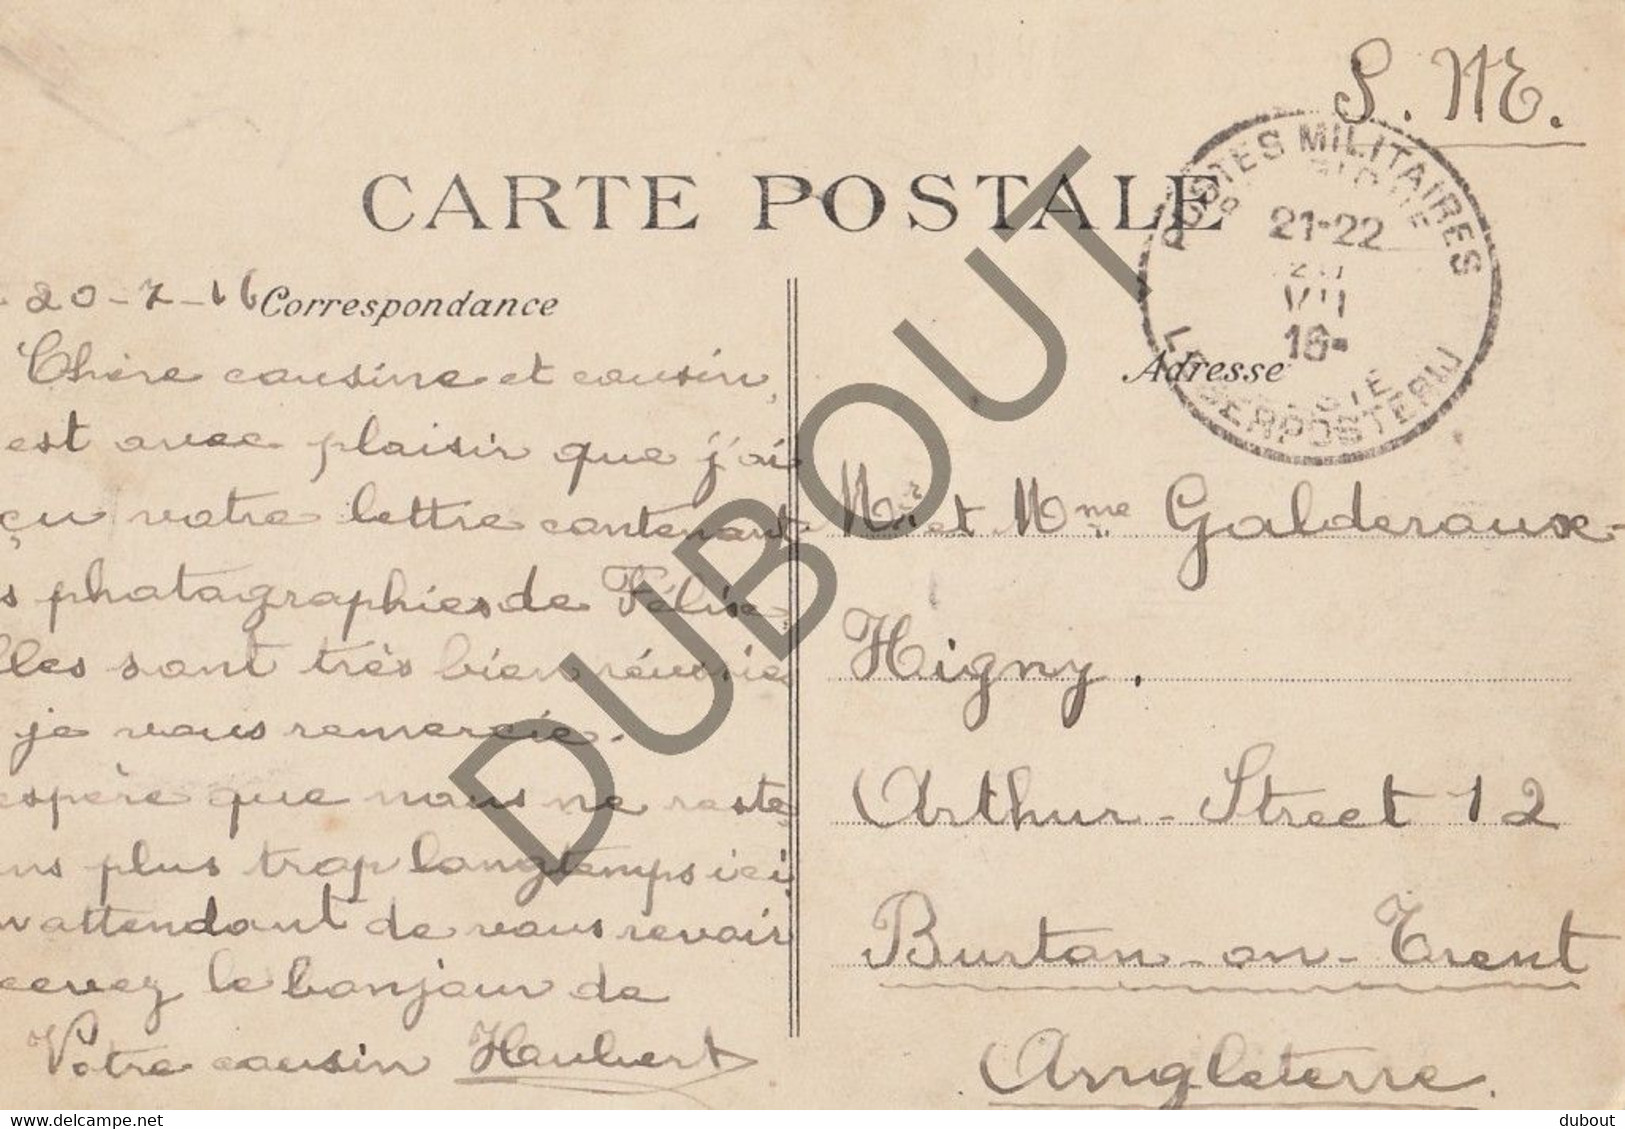 S. M.
CARTE POSTALE
POSTES MILITAIRES
21-22
VII
16
LEGERPOSTERIJ
20-7-16
Correspondance
Adresse
Chère cousine et cousin,
est avec plaisir que j'ai
çu votre lettre contenant
s photagraphies de Félise,
lles sont très bien réussies
je vous remercie.
espère que nous ne reste
ns plus trop longtemps ici
n attendant de vous revoir
cevez le bonjour de
Votre cousin Haubert
Mr et Mme Galderoux-
Higny.
Arthur-Street 12
Burton-on-Trent
Angleterre.
DUBOUT
www.delcampe.net
dubout